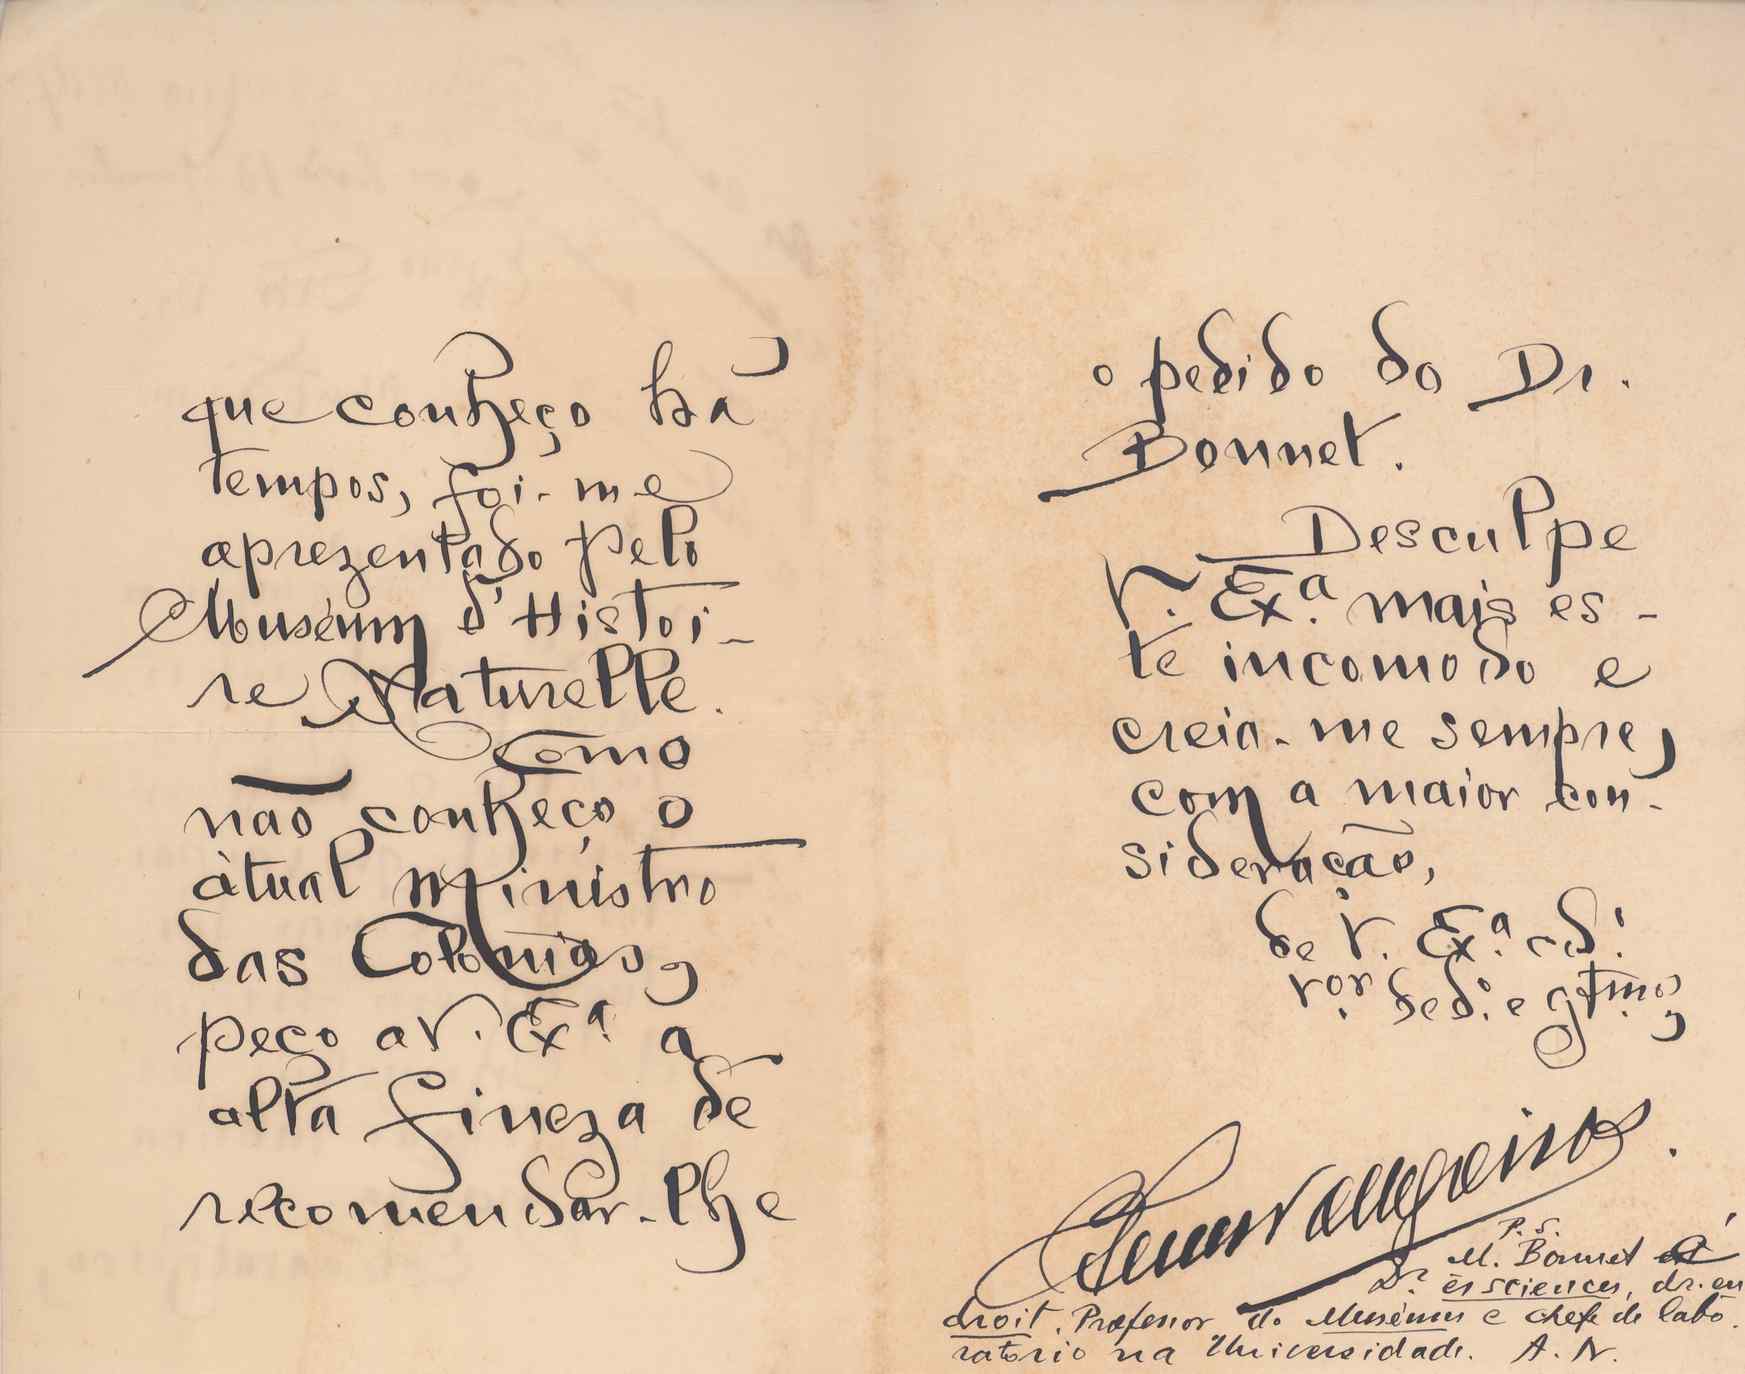 que conheço há
tempos, foi-me
aprezentado pelo
Muséum d'Histoi-
re Naturelle.
Como
não conheço o
àtual Ministro
das Colonias,
peço a V. Exª. a
alta fineza de
recomendar-lhe
o pedido do Dr.
Bonnet.
Desculpe
V. Exª. mais es-
te incomodo e
creia-me sempre,
com a maior con-
sideração,
de V. Exª. ad.
ror. ded.º e gtmo,
P. S.
M. Bonnet é
Dr. ès sciences, dr. en
droit, Professor do Muséum e chefe de labo.
ratorio na Universidade. A. N.